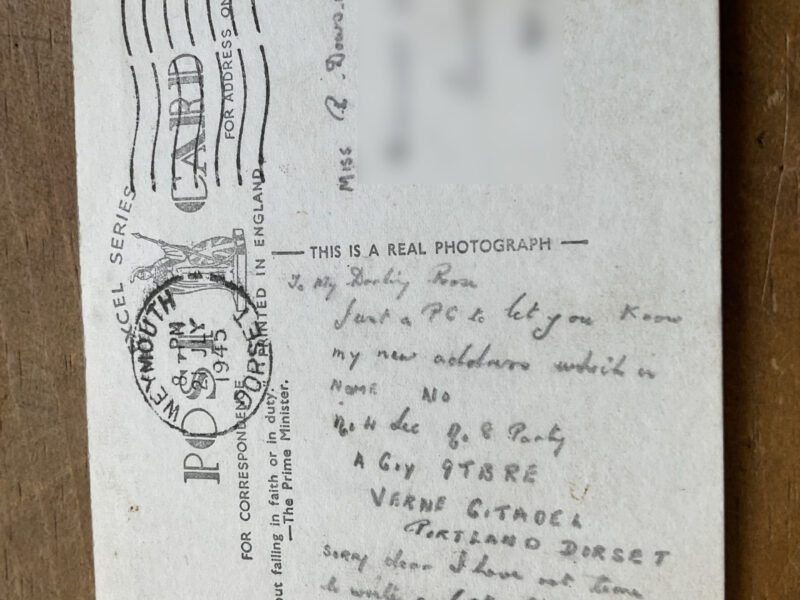 POST CARD
FOR CORRESPONDENCE
FOR ADDRESS ON
PRINTED IN ENGLAND
CEL SERIES
WEYMOUTH
DORSET
8 - PM
JLY
1945
out failing in faith or in duty.
—The Prime Minister.
MISS R. Dows
THIS IS A REAL PHOTOGRAPH
To My Darling Rose
Just a PC to let you Know
my new address which is
NAME No
Lee No 8 Party
A Coy 9TBRE
VERNE CITADEL
PORTLAND DORSET
Sorry dear I have not time
to write a